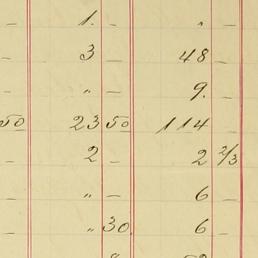 – 1. – „ –
– 3 – 48 –
– „ – 9. –
50 23 50 114 –
– 2 – 2 2/3
– „ – 6 –
– „ 30. 6 –